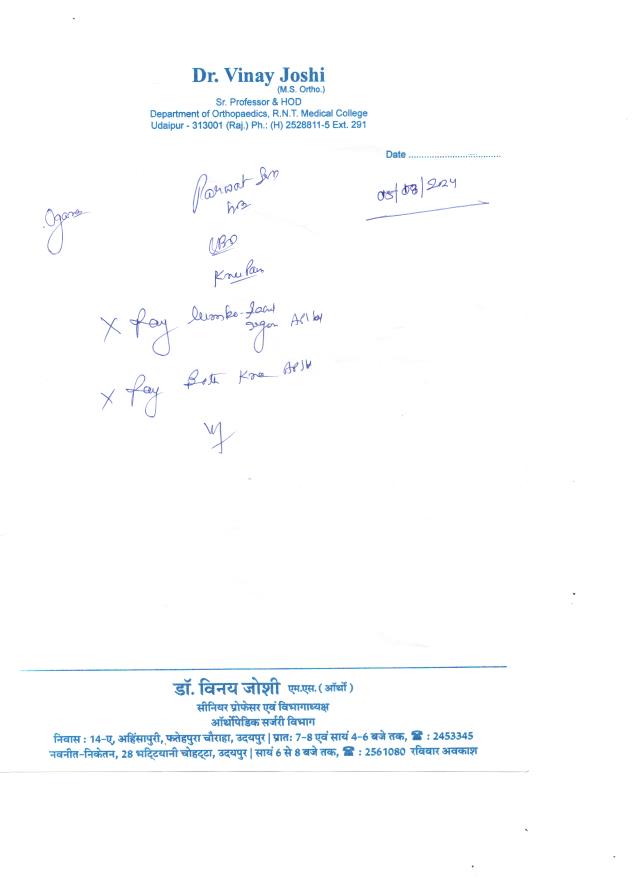 Dr. Vinay Joshi
(M.S. Ortho.)
Sr. Professor & HOD
Department of Orthopaedics, R.N.T. Medical College
Udaipur - 313001 (Raj.) Ph.: (H) 2528811-5 Ext. 291
Date ..................................
Parwat
05/03/2024
Knee Pain
X Ray lumbo-
X Ray Both Knee AP
डॉ. विनय जोशी एम.एस. ( ऑर्थो )
सीनियर प्रोफेसर एवं विभागाध्यक्ष
ऑर्थोपेडिक सर्जरी विभाग
निवास : 14-ए, अहिंसापुरी, फतेहपुरा चौराहा, उदयपुर | प्रातः 7-8 एवं सायं 4-6 बजे तक, ☎ : 2453345
नवनीत-निकेतन, 28 भट्टियानी चोहट्टा, उदयपुर | सायं 6 से 8 बजे तक, ☎ : 2561080 रविवार अवकाश